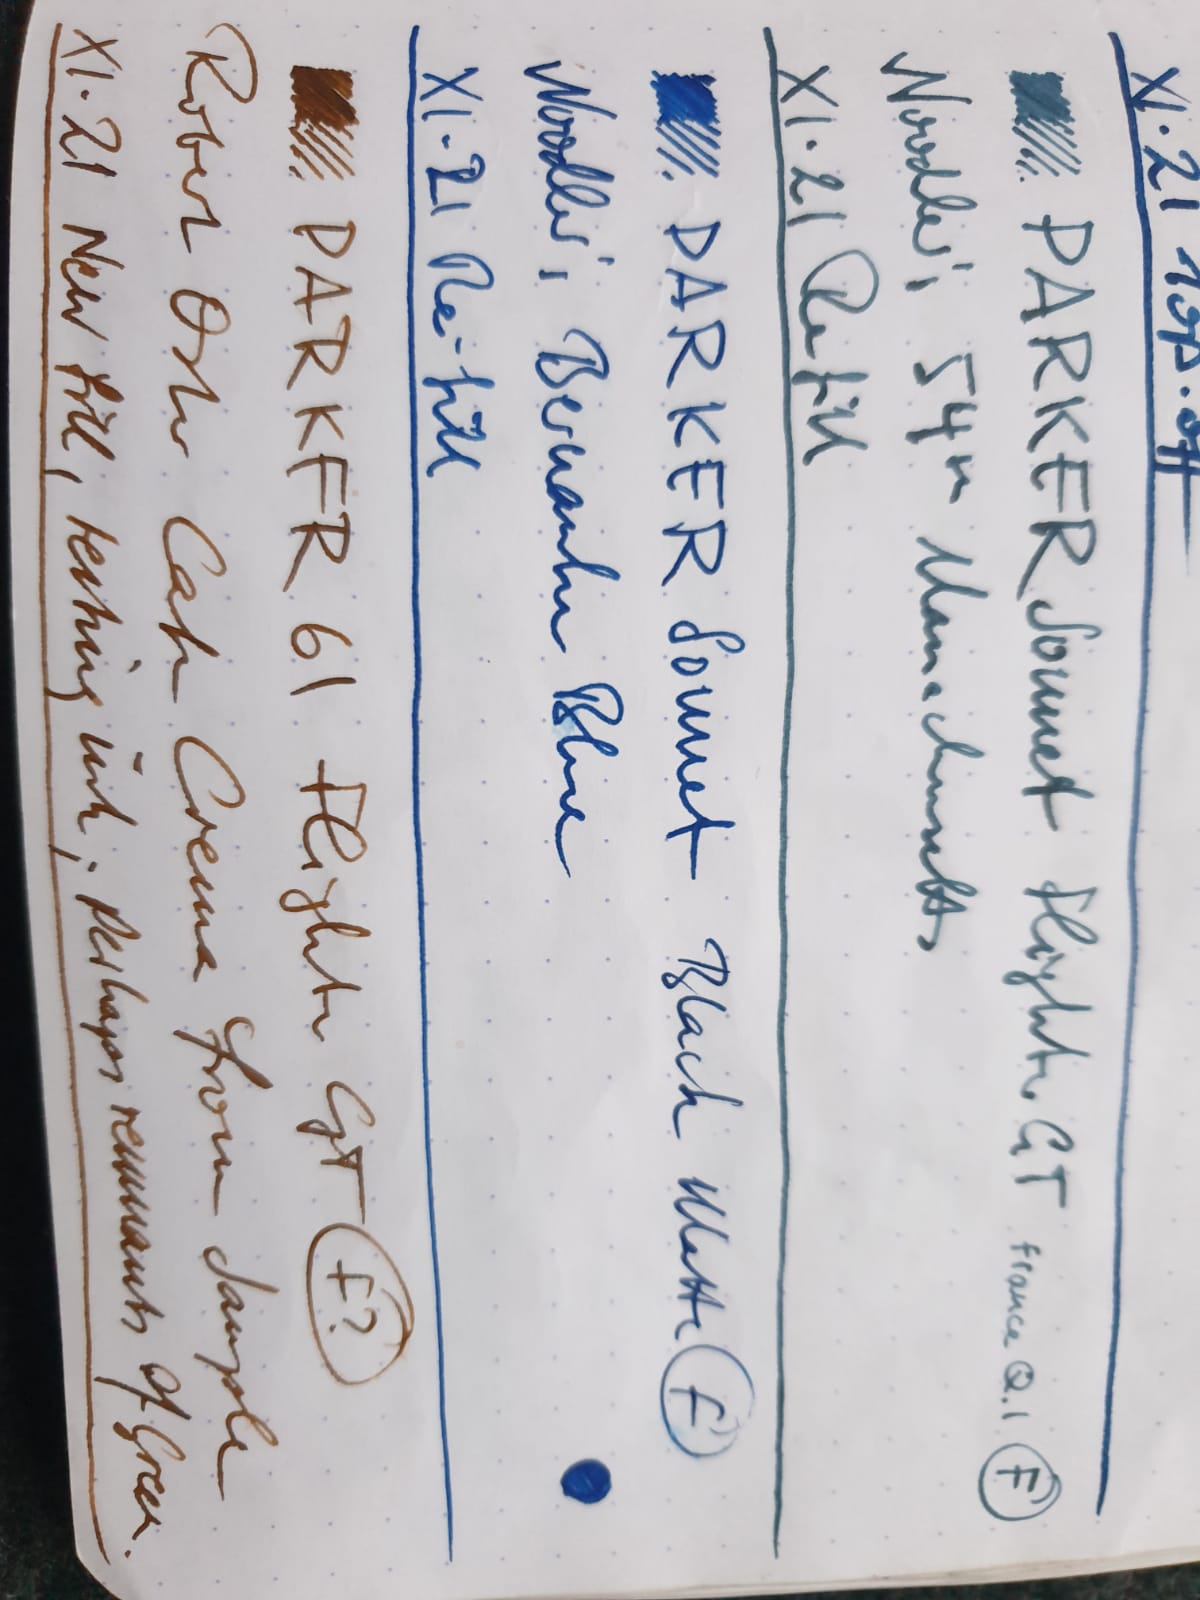 XI.21 Top.off
PARKER Sonnet Flighter GT France Q.I F
Noodler's 54th Massachusetts
XI.21 Refill
PARKER Sonnet Black Matte F
Noodler's Bernanke Blue
XI.21 Re-fill
PARKER 61 Flighter GT F?
Robert Oster Cafe Crema from sample
XI.21 New fill, testing ink; perhaps remnants of Green.